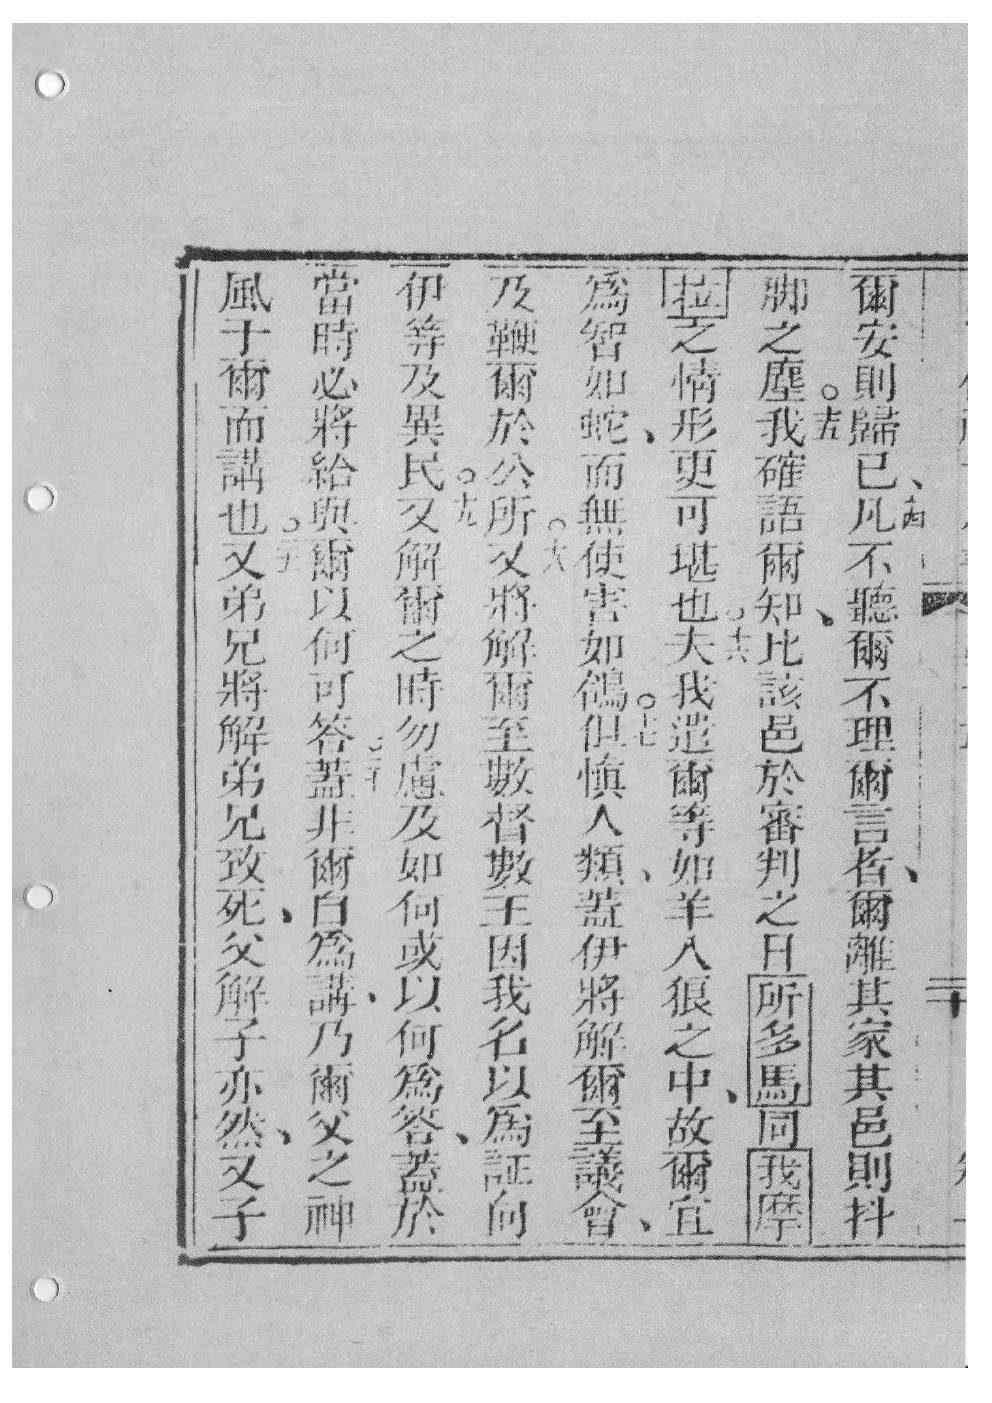 爾安則歸已、十四凡不聽爾不理爾言者、爾離其家其邑則抖
脚之塵。十五我確語爾知、比該邑於審判之日所多馬同我摩
拉之情形更可堪也。十六夫我遣爾等如羊入狼之中、故爾宜
爲智如蛇、而無使害如鴿。十七但愼人類、蓋伊將解爾至議會、
及鞭爾於公所。十八又將解爾至數督數王因我名以爲証向
伊等及異民。十九又解爾之時勿慮及如何或以何爲答、蓋於
當時必將給與爾以何可答。二十蓋非爾自爲講、乃爾父之神
風于爾而講也。二一又弟兄將解弟兄致死、父解子亦然、又子
二十